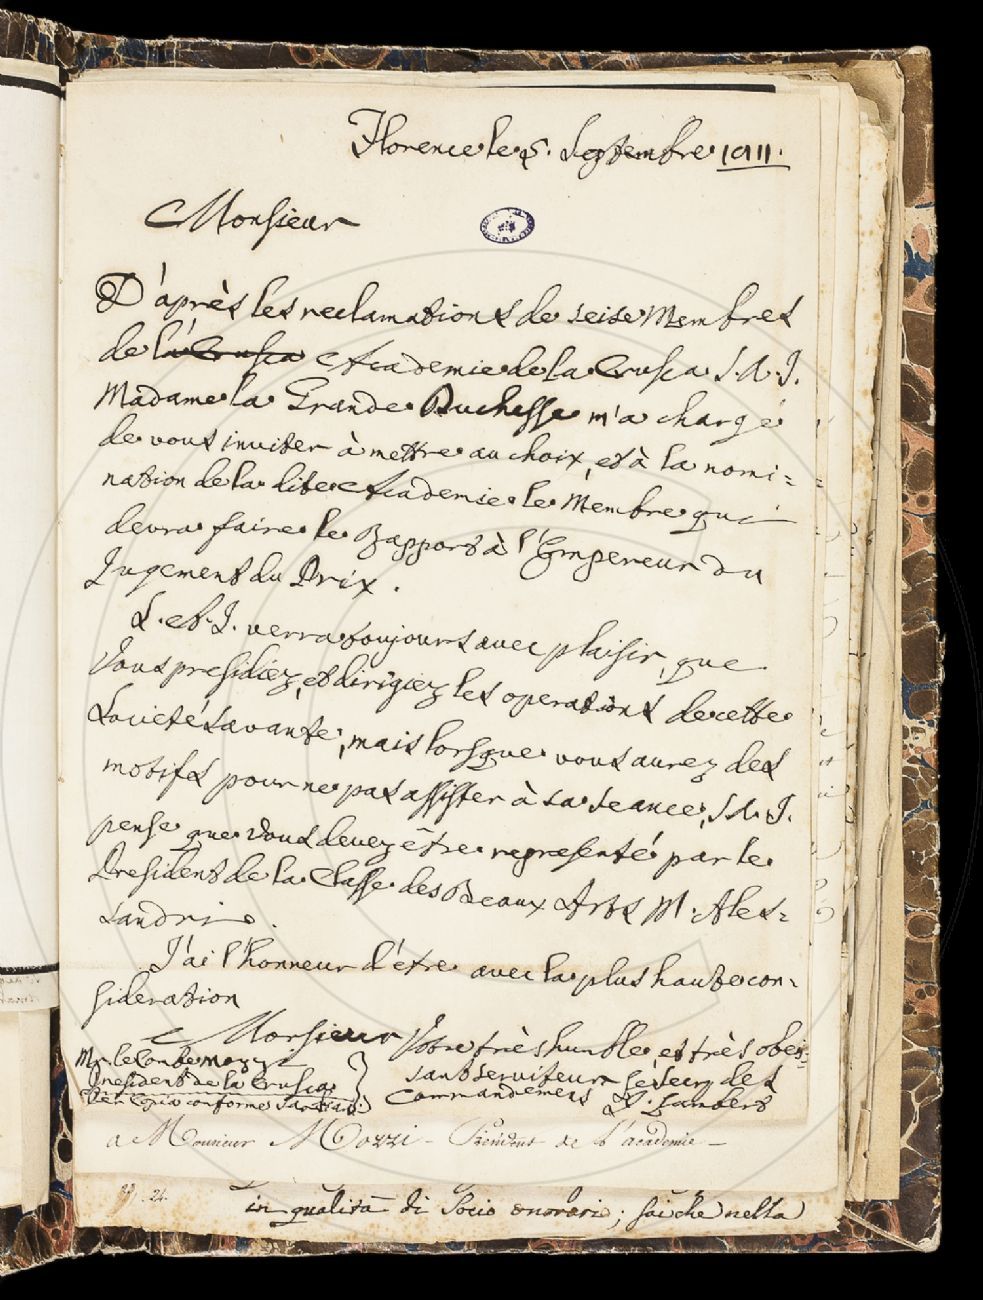 Florence le 5. Septembre 1811.
Monsieur
D'après les reclamations de seise Membres
de la Crusca Academie de la Crusca S. A. I.
Madame la Grande Duchesse m'a chargé
de vous inviter à mettre au choix, et à la nomi=
nation de la dite Academie le Membre qui
devra faire le Rapport à l'Empereur du
Jugement du Prix.
S. A. I. verra toujours avec plaisir, que
Vous presidiéz, et dirigiez les operations de cette
Societé savante, mais lorsque vous aurez des
motifs pour ne pas assister à sa seance, S. A. I.
pense que Vous devez être representé par le
President de la Classe des Beaux Arts M. Ales=
sandri.
J'ai l'honneur d'être avec la plus haute con=
sideration
Monsieur Votre très humble et très obeis=
sant serviteur le Secry des
Commandemens
Mr. le Conte Mozzi
President de la Crusca
Per Copia conforme
a Monsieur Mozzi - President de l'academie -
in qualità di Socio onorario; sai che nella